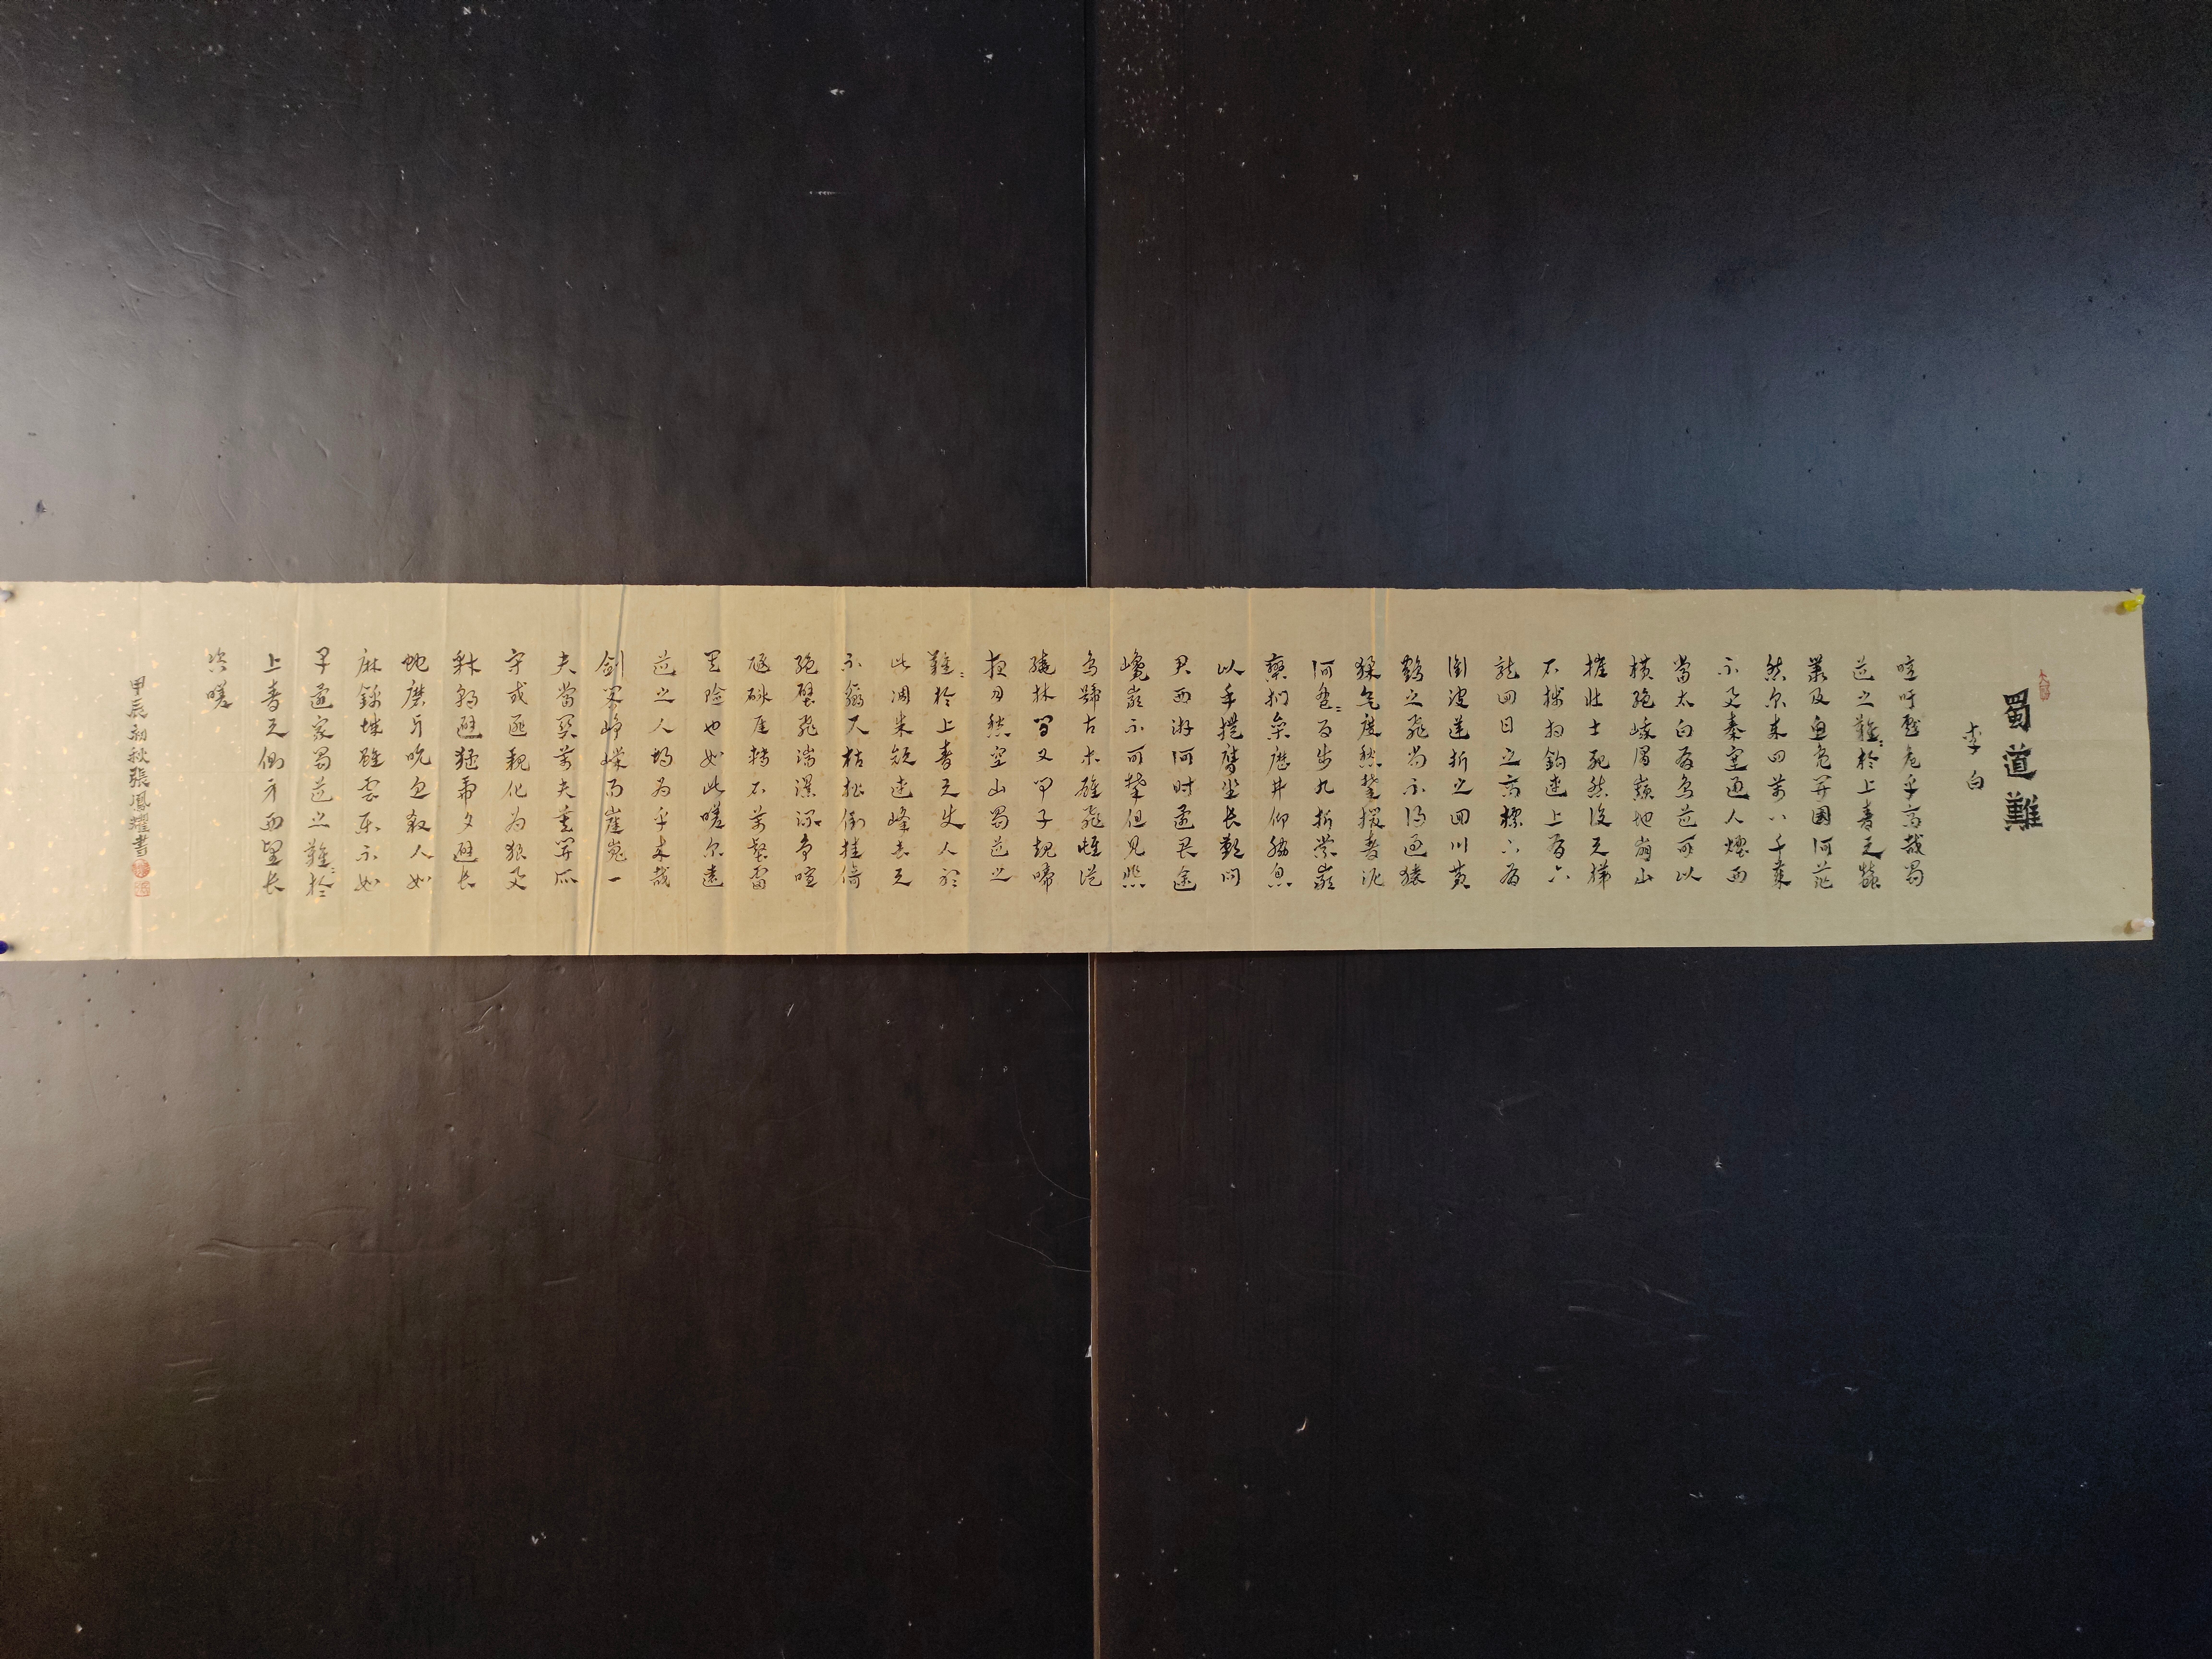 蜀道難
李白
噫吁戲危乎高哉蜀
道之難〻於上青天蠶
叢及魚鳧開國何茫
然尔来四萬八千歲
不與秦塞通人煙西
當太白有鳥道可以
橫絕峨眉巔地崩山
摧壯士死然後天梯
石棧相鉤連上有六
龍回日之高標下有
衝波逆折之回川黃
鶴之飛尚不得過猿
猱欲度愁攀援青泥
何盤〻百步九折縈巖
巒捫參歷井仰脅息
以手撫膺坐長歎問
君西遊何時還畏途
巉巖不可攀但見悲
鳥號古木雄飛雌從
繞林間又聞子規啼
夜月愁空山蜀道之
難〻於上青天使人聽
此凋朱顏連峰去天
不盈尺枯松倒挂倚
絕壁飛湍瀑流爭喧
豗砯崖轉石萬壑雷
其險也如此嗟尔遠
道之人胡為乎来哉
劍閣崢嶸而崔嵬一
夫當關萬夫莫開所
守或匪親化為狼與
豺朝避猛虎夕避長
蛇磨牙吮血殺人如
麻錦城雖雲樂不如
早還家蜀道之難〻於
上青天側身西望長
咨嗟
甲辰初秋張鳳耀書